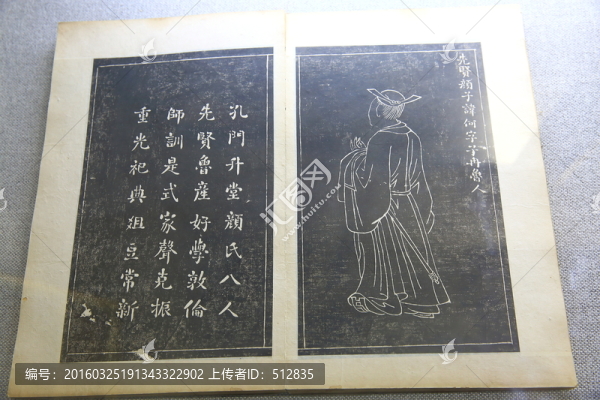 先賢顏子諱何字子冉魯人
孔門升堂顏氏八人
先賢魯産好學敦倫
師訓是式家聲克振
重光祀典俎豆常新
汇图网
www.huitu.com
编号：20160325191343322902 上传者ID：512835